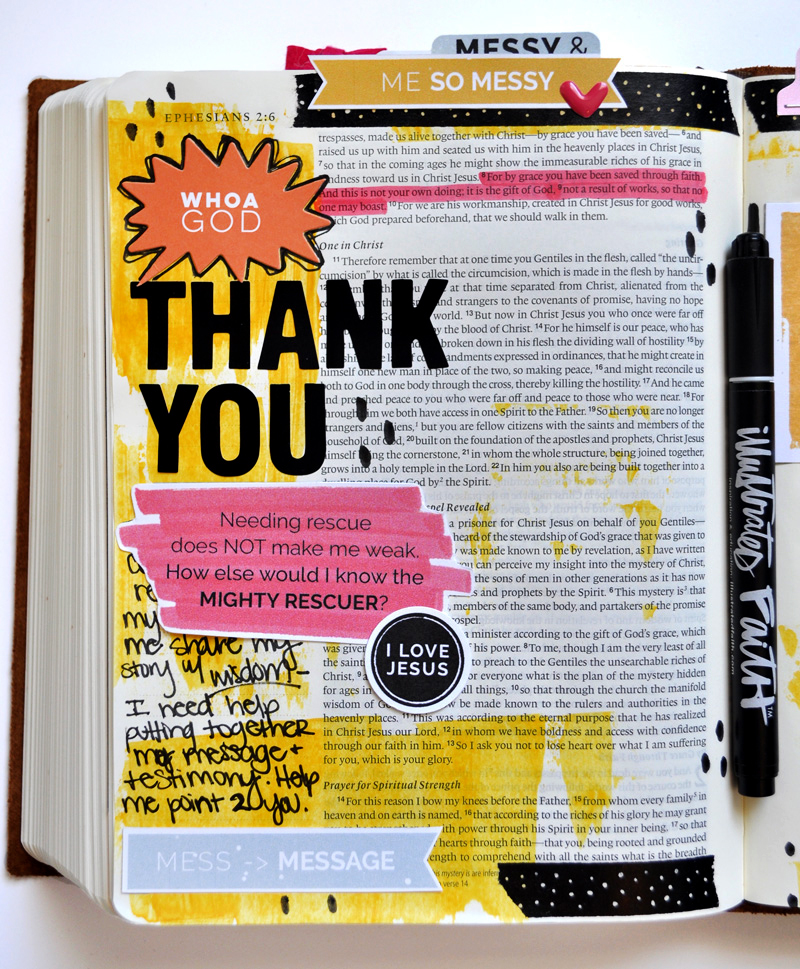 MESSY &
ME SO MESSY
EPHESIANS 2:6
WHOA
GOD
THANK
YOU
Needing rescue
does NOT make me weak.
How else would I know the
MIGHTY RESCUER?
I LOVE
JESUS
my
me share my
story w/ wisdom-
I need help
putting together
my message +
testimony. Help
me point 2 you.
MESS -> MESSAGE
trespasses, made us alive together with Christ—by grace you have been saved— 6 and
raised us up with him and seated us with him in the heavenly places in Christ Jesus,
7 so that in the coming ages he might show the immeasurable riches of his grace in
kindness toward us in Christ Jesus. 8 For by grace you have been saved through faith.
And this is not your own doing; it is the gift of God, 9 not a result of works, so that no
one may boast. 10 For we are his workmanship, created in Christ Jesus for good works,
which God prepared beforehand, that we should walk in them.
One in Christ
11 Therefore remember that at one time you Gentiles in the flesh, called "the uncir-
cumcision" by what is called the circumcision, which is made in the flesh by hands—
12 at that time separated from Christ, alienated from the
and strangers to the covenants of promise, having no hope
world. 13 But now in Christ Jesus you who once were far off
by the blood of Christ. 14 For he himself is our peace, who has
broken down in his flesh the dividing wall of hostility 15 by
commandments expressed in ordinances, that he might create in
himself one new man in place of the two, so making peace, 16 and might reconcile us
both to God in one body through the cross, thereby killing the hostility. 17 And he came
and preached peace to you who were far off and peace to those who were near. 18 For
through him we both have access in one Spirit to the Father. 19 So then you are no longer
strangers and aliens,¹ but you are fellow citizens with the saints and members of the
household of God, 20 built on the foundation of the apostles and prophets, Christ Jesus
himself being the cornerstone, 21 in whom the whole structure, being joined together,
grows into a holy temple in the Lord. 22 In him you also are being built together into a
dwelling place for God by² the Spirit.
Gospel Revealed
a prisoner for Christ Jesus on behalf of you Gentiles—
heard of the stewardship of God's grace that was given to
was made known to me by revelation, as I have written
you can perceive my insight into the mystery of Christ,
the sons of men in other generations as it has now
and prophets by the Spirit. 6 This mystery is³ that
members of the same body, and partakers of the promise
gospel.
a minister according to the gift of God's grace, which
was given of his power. 8 To me, though I am the very least of all
the saints to preach to the Gentiles the unsearchable riches of
Christ, 9 for everyone what is the plan of the mystery hidden
for ages all things, 10 so that through the church the manifold
wisdom of God be made known to the rulers and authorities in the
heavenly places. 11 This was according to the eternal purpose that he has realized
in Christ Jesus our Lord, 12 in whom we have boldness and access with confidence
through our faith in him. 13 So I ask you not to lose heart over what I am suffering
for you, which is your glory.
Prayer for Spiritual Strength
14 For this reason I bow my knees before the Father, 15 from whom every family⁵ in
heaven and on earth is named, 16 that according to the riches of his glory he may grant
with power through his Spirit in your inner being, 17 so that
hearts through faith—that you, being rooted and grounded
strength to comprehend with all the saints what is the breadth
verse 14
illustrated Faith™